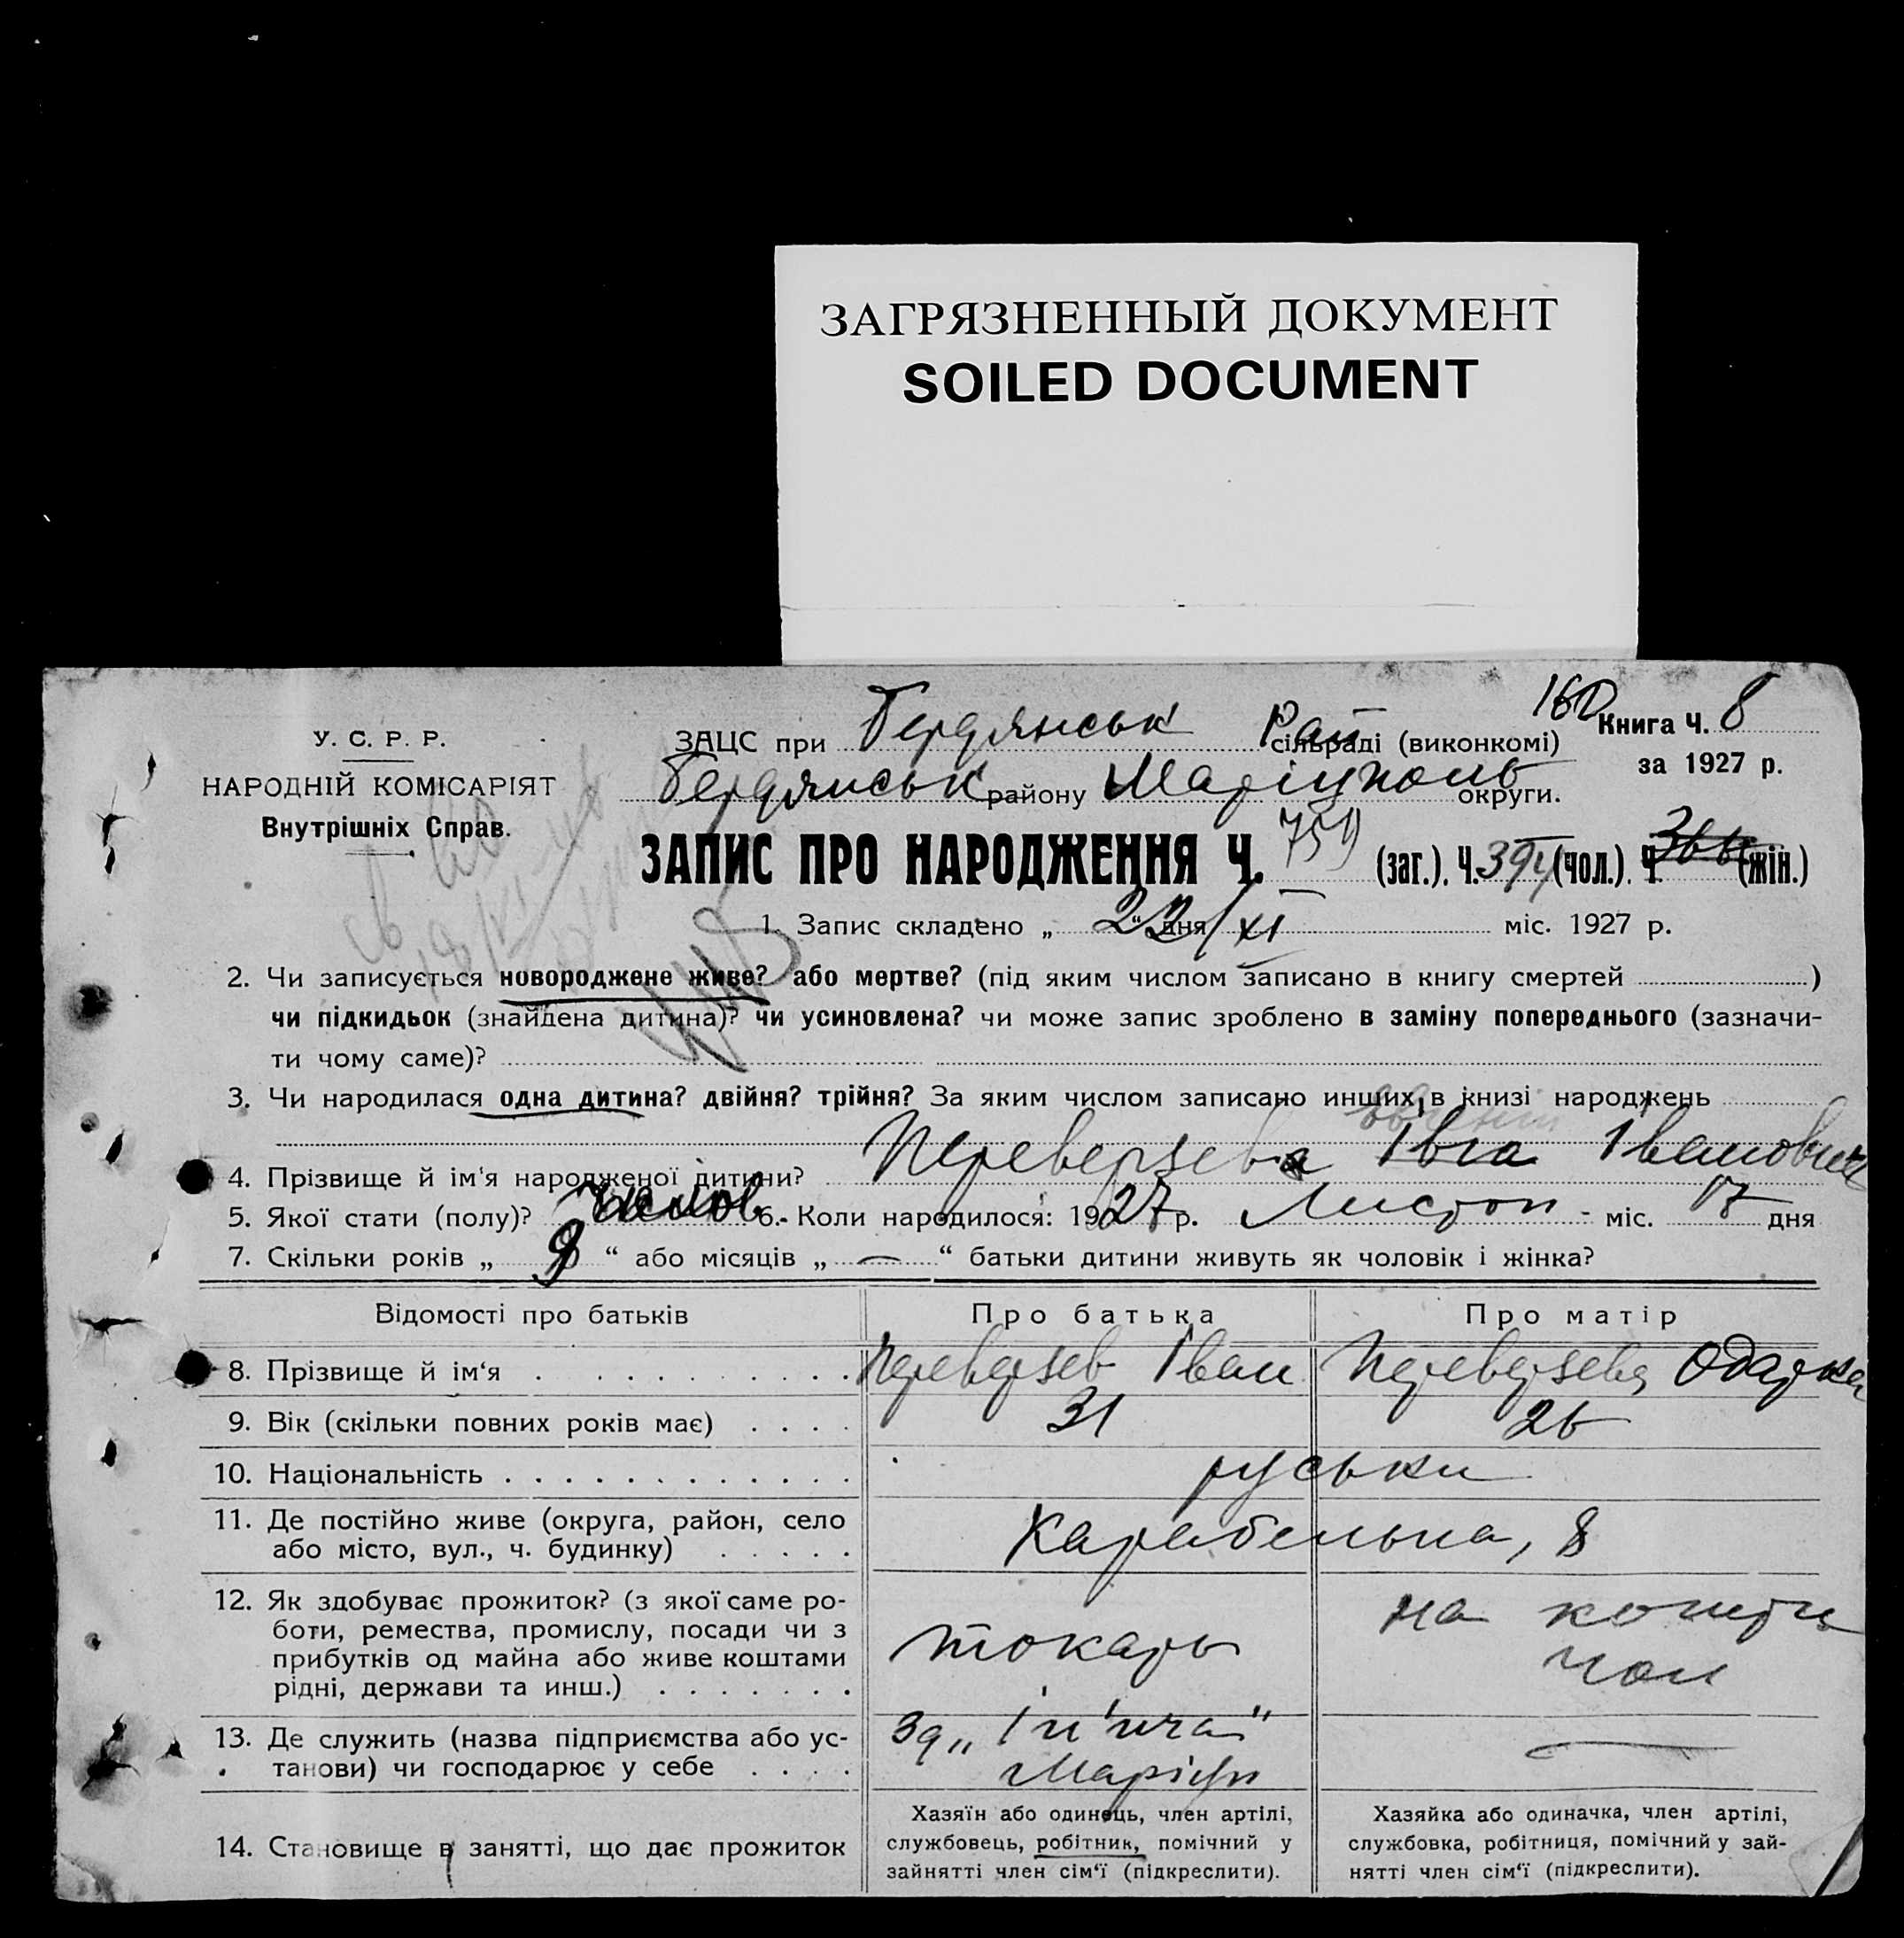 ЗАГРЯЗНЕННЫЙ ДОКУМЕНТ
SOILED DOCUMENT
У. С. Р. Р.
НАРОДНІЙ КОМІСАРІЯТ
Внутрішніх Справ.
ЗАЦС при Бердянськ Рай сільраді (виконкомі)
160 Книга Ч. 8
за 1927 р.
Бердянськ району Маріуполь округи.
ЗАПИС ПРО НАРОДЖЕННЯ Ч. 759 (заг.). Ч. 394 (чол.). Ч. (жін.)
1. Запис складено „ 22/XI “ дня міс. 1927 р.
2. Чи записується новороджене живе? або мертве? (під яким числом записано в книгу смертей )
чи підкидьок (знайдена дитина)? чи усиновлена? чи може запис зроблено в заміну попереднього (зазначи-
ти чому саме)?
3. Чи народилася одна дитина? двійня? трійня? За яким числом записано инших в книзі народжень
4. Прізвище й ім'я народженої дитини? Переверзева Івга Іванович
5. Якої стати (полу)? чолов. 6. Коли народилося: 1927 р. Листоп - міс. 17 дня
7. Скільки років „ 9 “ або місяців „ — “ батьки дитини живуть як чоловік і жінка?
Відомості про батьків Про батька Про матір
8. Прізвище й ім‘я Переверзев Іван Переверзева Одарка
9. Вік (скільки повних років має) 31 26
10. Національність руськи
11. Де постійно живе (округа, район, село
або місто, вул., ч. будинку) Карабельна, 8
12. Як здобуває прожиток? (з якої саме ро-
боти, ремества, промислу, посади чи з
прибутків од майна або живе коштами
рідні, держави та инш.) токарь на кошти чол
13. Де служить (назва підприємства або ус-
танови) чи господарює у себе зд „Іл'іча" Маріуп —
14. Становище в занятті, що дає прожиток
Хазяїн або одинець, член артілі,
службовець, робітник, помічний у
зайнятті член сім‘ї (підкреслити).
Хазяйка або одиначка, член артілі,
службовка, робітниця, помічний у зай-
нятті член сім‘ї (підкреслити).